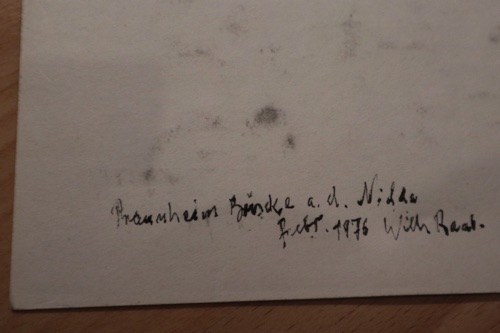 Praunheim Brücke a. d. Nidda
Febr. 1976 Willi Raab.